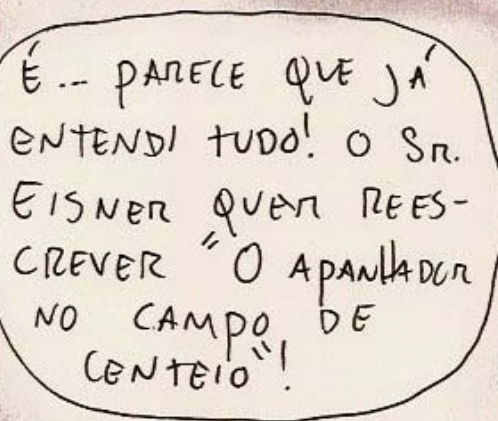 É... PARECE QUE JÁ
ENTENDI TUDO! O SR.
EISNER QUER REES-
CREVER "O APANHADOR
NO CAMPO DE
CENTEIO"!